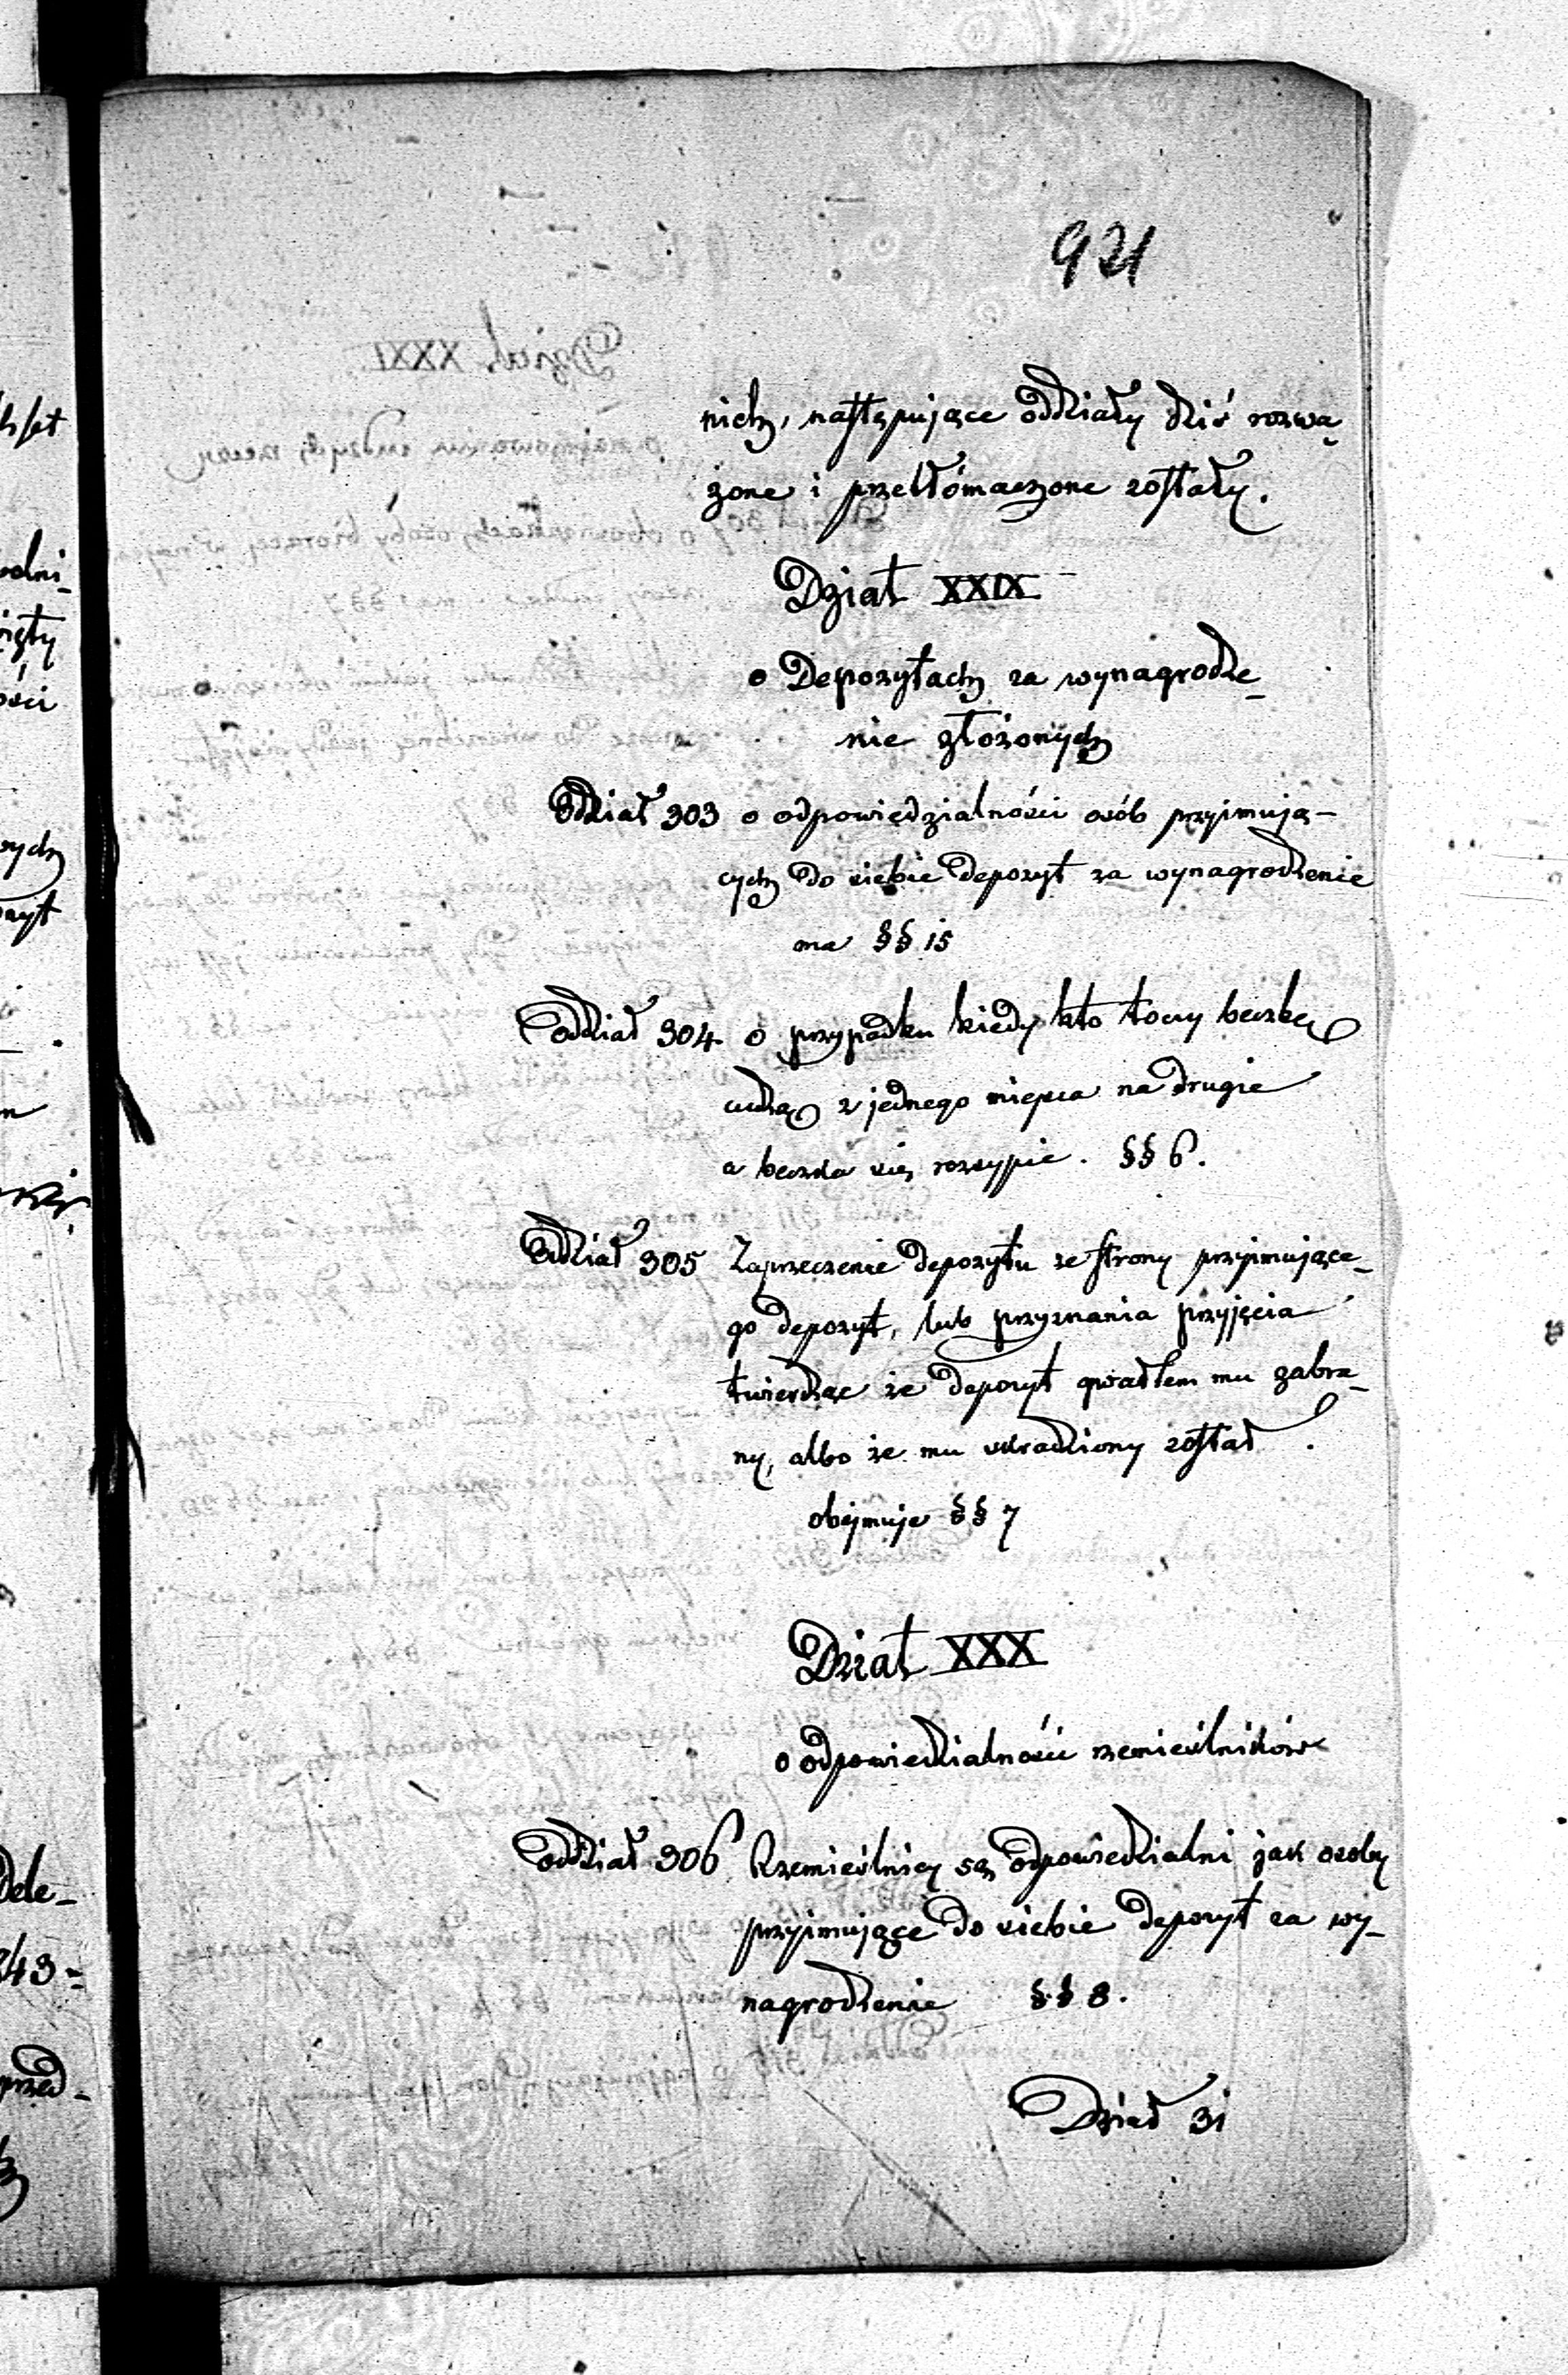 921
nich, następujące oddziały dziś rozwa_
żone i przetłómaczone zostały.
Dział XXIX
o Depozytach za wynagrodze_
nie złożonych
Oddział 303 o odpowiedzialności osób przyjmują-
cych do siebie depozyt za wynagrodzenie
ma §§ 15
Oddział 304 o przypadku kiedy kto toczy beczkę
cudzą z jednego miejsca na drugie
a beczka się rozsypie. §§ 6.
Oddział 305 Zaprzeczenie depozytu ze strony przyjmujące_
go depozyt, lub przyznania przyjęcia
twierdząc że depozyt gwałtem mu zabra_
ny, albo że mu skradziony został.
obejmuje §§ 7
Dział XXX
o odpowiedzialności rzemieślników
Oddział 306 Rzemieślnicy są odpowiedzialni jak osoby
przyjmujące do siebie depozyt za wy_
nagrodzenie §§ 8.
Dział 31